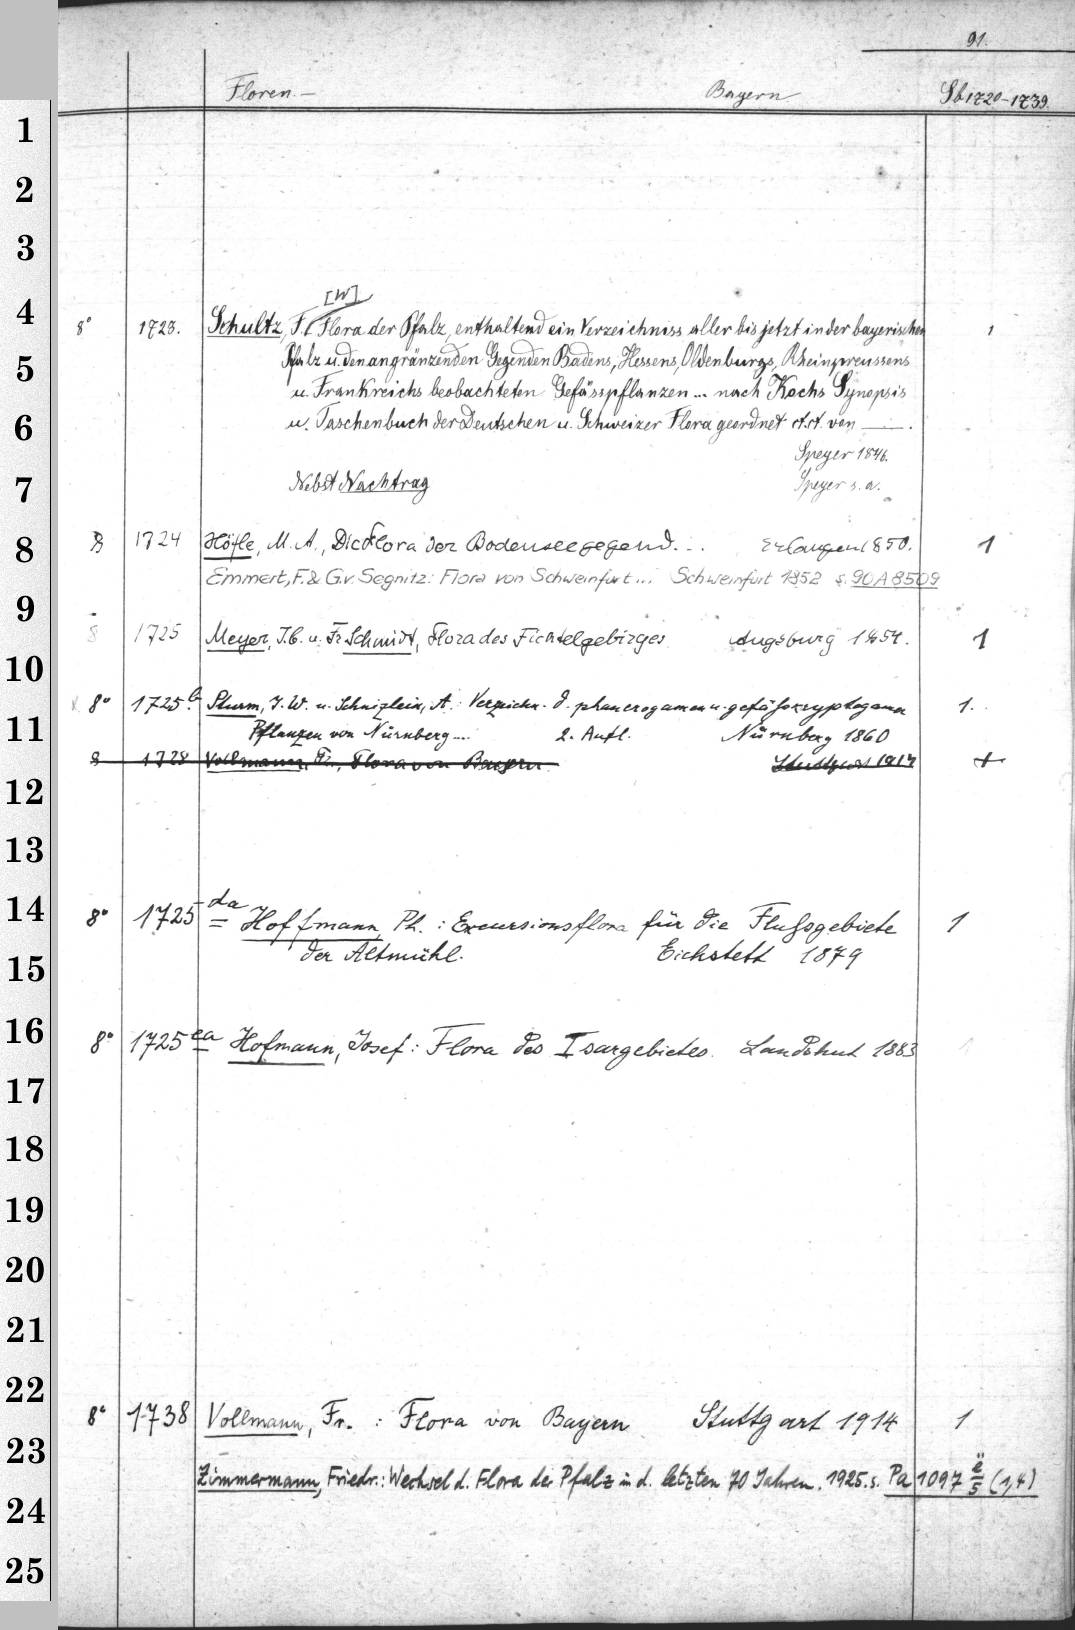 91.
Floren.— Bayern Sb1720-1739.
1
2
3
4
5
6
7
8
9
10
11
12
13
14
15
16
17
18
19
20
21
22
23
24
25
[W]
8° 1723. Schultz, F. Flora der Pfalz, enthaltend ein Verzeichniss aller bis jetzt in der bayerischen 1
Pfalz u. den angränzenden Gegenden Badens, Hessens, Oldenburgs, Rheinpreussens
u. Frankreichs beobachteten Gefässpflanzen... nach Kochs Synopsis
u. Taschenbuch der Deutschen u. Schweizer Flora geordnet etct von —.
Speyer 1846.
Nebst Nachtrag Speyer s. a.
8 1724 Höfle, M. A., Die Flora der Bodenseegegend... Erlangen 1850. 1
Emmert, F. & G.v. Segnitz: Flora von Schweinfurt... Schweinfurt 1852 s. 90A8509
8 1725 Meyer, J.C. u. Fr. Schmidt, Flora des Fichtelgebirges Augsburg 1854. 1
8° 1725.b Sturm, J. W. u. Schnizlein, A.: Verzeichn. d. phanerogamen u. gefäßkryptogamen 1.
Pflanzen von Nürnberg... 2. Aufl. Nürnberg 1860
8 1728 Vollmann, Fr., Flora von Bayern Stuttgart 1914 +
8° 1725 da Hoffmann, Ph.: Excursionsflora für die Flußgebiete 1
der Altmühl. Eichstett 1879
8° 1725 ea Hofmann, Josef: Flora des Isargebietes. Landshut 1883
8° 1738 Vollmann, Fr. : Flora von Bayern Stuttgart 1914 1
Zimmermann, Friedr.: Wechsel d. Flora der Pfalz in d. letzten 70 Jahren. 1925. s. Pa 1097 ë/5 (1,4)